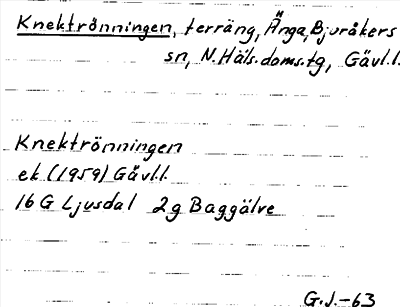 Knektrönningen, terräng, Änga, Bjuråkers
sn, N. Häls. doms. tg, Gävl. l.
Knektrönningen
ek (1959) Gävl. l.
16 G Ljusdal 2 g Baggälve
G. J. -63